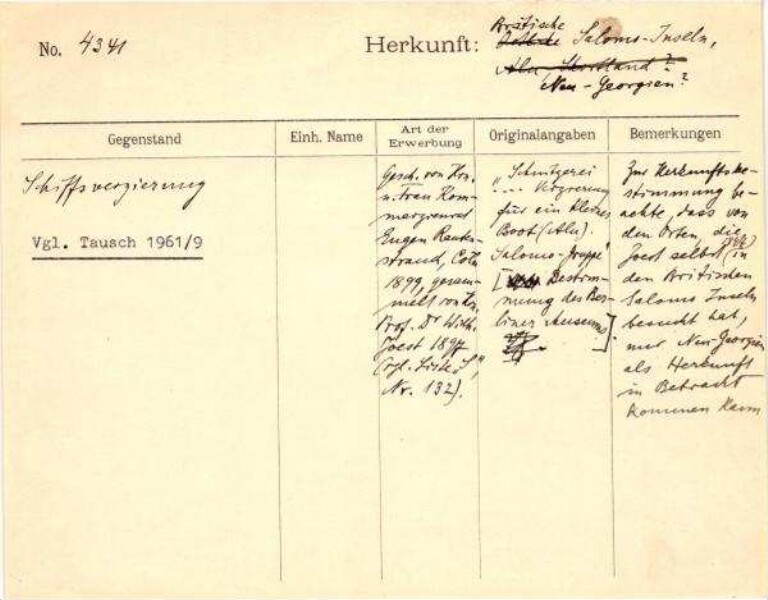 No. 4341
Herkunft: Britische
Salomo-Inseln,
Alu Shortland?
Neu-Georgien?
Gegenstand
Einh. Name
Art der
Erwerbung
Originalangaben
Bemerkungen
Schiffsverzierung
Vgl. Tausch 1961/9
Gesch. von Hrn.
u. Frau Kom-
merzienrat
Eugen Rauten-
strauch, Cöln
1899, gesam-
melt von Hrn.
Prof. Dr Wilh.
Joest 1897
(vgl. Liste S",
Nr. 132).
"Schnitzerei
.... Verzierung
für ein kleines
Boot (Alu).
Salomo-Gruppe"
[Bestim-
mung des Ber-
liner Museums]
Zur Herkunftsbe-
stimmung be-
achte, dass von
den Orten, die
Joest selbst in
den Britischen
Salomo Inseln
besucht hat,
nur Neu-Georgien
als Herkunft
in Betracht
kommen kann